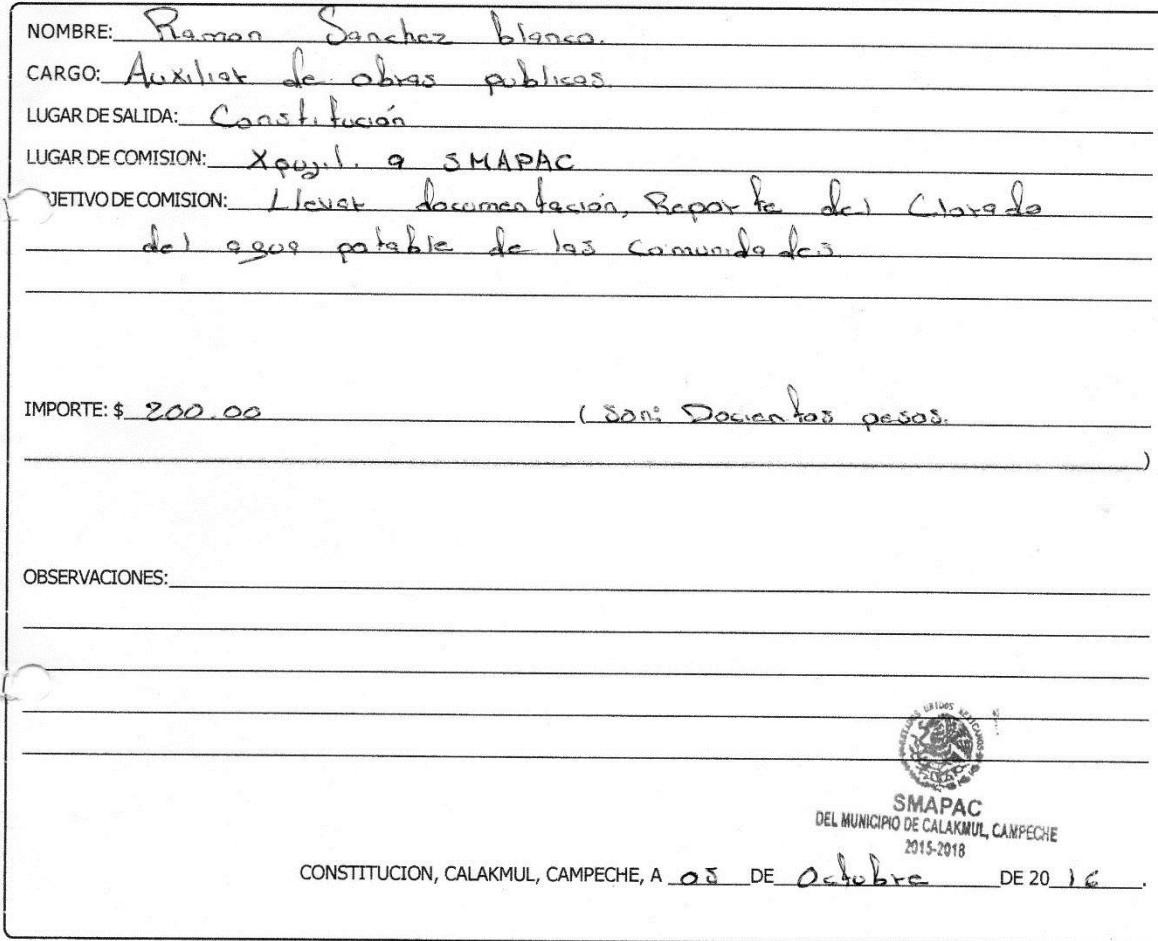 NOMBRE: Ramon Sanchez blanco.
CARGO: Auxiliar de obras publicas
LUGAR DE SALIDA: Constitución
LUGAR DE COMISION: Xpujil. a SMAPAC
JETIVO DE COMISION: Llevar documentación, Reporte del Clorado
del agua potable de las Comunidades
IMPORTE: $ 200.00 ( Son: Docientos pesos.
)
OBSERVACIONES:
ESTADOS UNIDOS MEXICANOS
SMAPAC
DEL MUNICIPIO DE CALAKMUL, CAMPECHE
2015-2018
CONSTITUCION, CALAKMUL, CAMPECHE, A 05 DE Octubre DE 20 16.